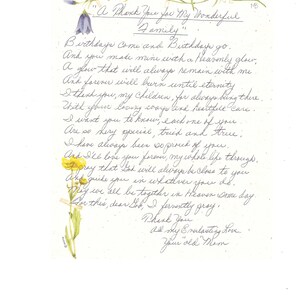 "A Thank You for My Wonderful
Family"
Birthdays Come and Birthdays go.
And you made mine with a Heavenly glow.
A glow that will always remain with me
And forever will burn until eternity.
I thank you, my Children, for always being there
With your loving ways and heartfelt care.
I want you to know, each one of you
Are so very special, tried and true.
I have always been so proud of you.
And I'll love you forever, my whole life through.
I pray that God will always be close to you
And guide you in whatever you do.
May we all be together in Heaven some day.
For this, dear God, I fervently pray.
Thank You
All my Everlasting Love
Your "old" Mom